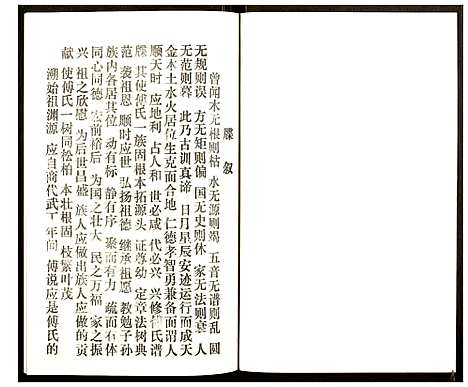 牒叙
曾闻木无根则枯 水无源则竭 五音无谱则乱 圆
无规则误 方无矩则偏 国无史则休 家无法则衰 人
无范则暮 此乃古训真谛 日月星辰安迹运行而成天
金木土水火居位生克而合地 仁德孝智勇兼备而谓人
顺天时 应地利 占人和 世必咸 代必兴 兴修傅氏谱
牒 其使傅氏一族固根本拓源头 证尊幼 定章法树典
范 袭祖恩 顺时应世 弘扬祖德 继承祖愿 教勉子孙
族内各居其位 动有标 静有序 聚而有力 疏而右体
同心同德 宏前裕后 为国之壮大 民之万福 家之振
兴 祖之欣慰 为后世昌盛 族人应做出族人应做的贡
献 使傅氏一树同松柏 本壮根固 枝繁叶茂
溯始祖渊源 应自商代武丁年间 傅说应是傅氏的